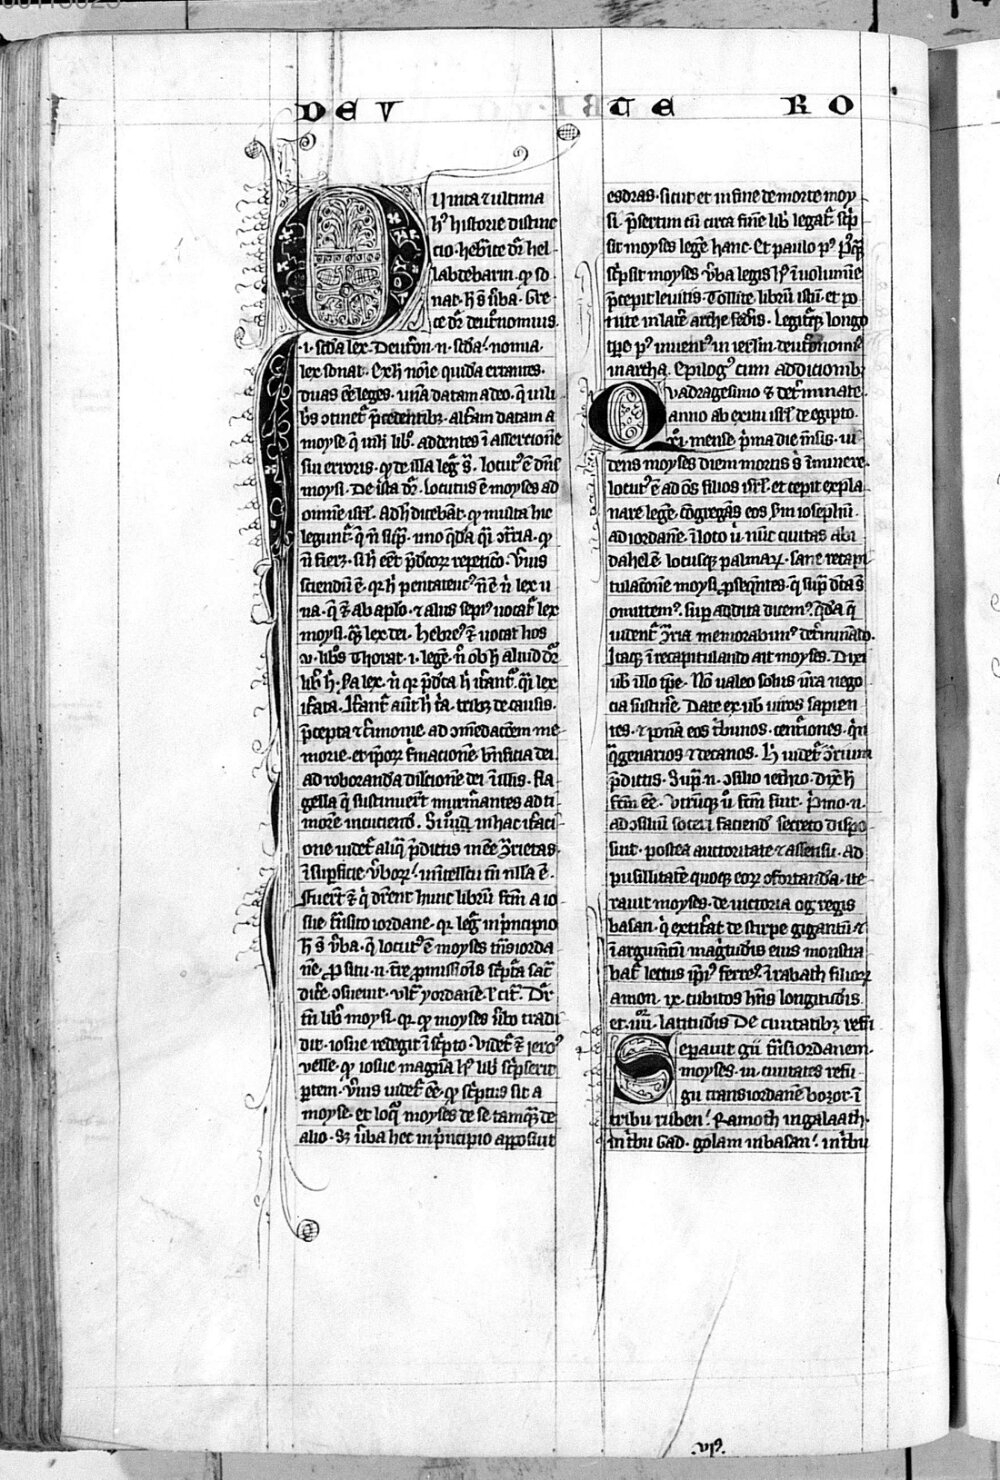 DEV TE RO
Quinta ⁊ ultima
hꝰ historie distinc
cio. heb̾ice dr̄ hel
labdebarim. qđ so
nat. h̄ s̄ v̾ba. Gre
ce dr̄ deut̾nomius.
.i. scđa lex. Deut̾on .n. scđa. nomia.
lex sonat. Ex h̄ noīe quidā errantes.
duas eē leges. unā datam a deo. q̄ in
b̾s ꝯtinet̾ p̄cedentibꝫ. aliam datam a
moyse q̄ in h̄ libro. addentes ī assercionē
sui erroris. qđ de illa leg̾ s̄. locutꝰ ē dn̄s
moysi. De ista dr̄. locutus ē moyses ad
omnē isrl̄. Ad h̄ dicebāt. qđ multa hic
legunt̾
n̄ fierꝫ. si h̄ eēt p̄dcōꝝ repeticō. Verius
sciendū ē. qꝛ h̄ pentateucꝰ n̄ ē n̄ lex u
na. q̄ ⁊ ab aplo. ⁊ aliis sepiꝰ uocat̾ lex
moysi. qn̄qꝫ lex dei. hebreꝰ ⁊ uocat hos
.v. lib̾os Thorat .i. legē. n̄ ob h̄ aliud dr̄
lib̾ h̄. scđa lex. n̄ qꝛ p̄dcā h̄ it̾ant̾. q̄i lex
it̾ata. It̾ant̾ aūt h̄ ita. tribꝫ de causis.
p̄cepta ⁊ c̾imonie. ad ꝯmēdacōem me
morie. et ip̄oꝝ ꝯfirmacionē. b̄nficia dei
ad roboranda dilcionē dei ī illis. fla
gella q̄ sustinuer̄t murm̾antes ad ti
morē incuciend̄. in hac it̾aci
one uidet̾ aliq̄ p̄dictis inēē ꝯ̾rietas.
ī sup̾ficie v̾boꝝ. in intellcū tn̄ nlla ē.
Fuer̄t ⁊ q̄ dicer̄ent hunc librū scm̄ a io
sue t̾nsito iordane. qꝛ leg̾ in p̾ncipio
h̄ s̄ v̾ba. q̄ locutꝰ ē moyses t̾ns iorda
nē. ꝓ situ .n. t̾re ꝓmissiōis sc̾pta sac̾
dic̾e ꝯsueuit. vlt̾ yordanē. l̾ cit̾. Dr̄
tn̄ lib̾ moysi. qꝛ qđ moyses v̾bo tradi
dit. iosue redegit ī sc̾pto. Videt̾ ⁊ iero
uelle. qđ iosue magnā hꝰ lib̾i sc̾pserit
ptem. verius uidet̾ eē. qđ sc̾ptus sit a
moyse. et loq̾ moyses de se tamq̄ꝫ de
alio. Sꝫ v̾ba hec in p̾ncipio apposuit
esdras. sicut et in fine de morte moy
si. p̄sertim cū circa finē lib̾i legat̾. sc̾p
sit moyses legē hanc. Et paulo pꝰ
sc̾psit moyses v̾ba legis hꝰ ī uolumīe
p̄cepit leuitis. Tollite librū istū. et po
nite in lat̾e arche fed̾is. Legit̾qꝫ longo
tp̄e pꝰ inuentꝰ in ier̄lm deut̾onomiꝰ
in archa. Epilogꝰ cum addicionibꝫ
Quadragesimo ⁊ det̾minate
anno ab exitu isrl̄ de egipto.
xi. mense p̾ma die m̄sis. ui
dens moyses diem mortis s̄ īminere.
locutꝰ ē ad oēs filios isrl̄. et cepit expla
nare legē. cōgregās eos s̾m iosephū.
ad iordanē. ī loco u̾. nūc ciuitas abi
dahel ē. locusqꝫ palmaꝝ. Sane recapi
tulacionē moysi ꝓseq̄ntes. q̄ sup̾ dcā s̄
omittemꝰ. sup addita dicemꝰ. q̄dā q̄
uident̾ ꝯ̾ria memorabimꝰ det̾minādo.
Itaqꝫ ī recapitulando ait moyses. Dixi
uob̾ illo tp̄e. Nō ualeo solus v̄ra nego
cia sustin̾e. Date ex uob̾ uiros sapien
tes. ⁊ ponā eos t̾bunos. cent̾iones. q̾n
q̄genarios ⁊ decanos. h̄ uidet̾ ꝯ̾rium
p̄dictis. Sup̾ .n. ꝯsilio iethro. dix̾ h̄
scm̄ eē. Vtrumqꝫ u̾ scm̄ fuit. p̾mo .n.
ad ꝯsiliū soceri faciend̄ secreto dispo
suit. postea auctoritate ⁊ assensu. Ad
pusillitatē quoqꝫ eoꝝ ꝯfortandā. ite
rauit moyses. de uictoria og regis
basan. q̾ extit̾at de stirpe gigantū ⁊
ī argum̄tū mag̾tudīs eius monstra
bat̾ lectus ip̄iꝰ ferreꝰ. ī rabath filioꝝ
amon. ix. cubitos h̄ns longitudīs
et .iiii. latitudīs De ciuitatibꝫ refu
Seperauit gii t̾ns iordanem.
moyses .iii. ciuitates refu
gii trans iordanē bozor. ī
tribu ruben. Ramoth in galaath.
in t̾bu Gad. golam in basan. in t̾bu